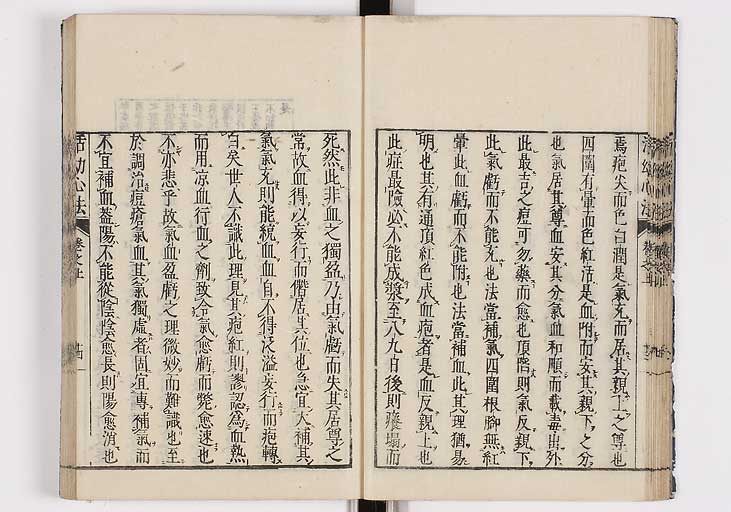 焉疱尖而色白潤是氣充而居其親上之尊也
四圍有暈而色紅活是血附而安其親下之分
也氣居其尊血安其分氣血和順而載毒出外
此最吉之痘可勿藥而愈也頂陷則氣反親下
此氣虧而不能充也法當補氣四圍根腳無紅
暈此血虧而不能附也法當補血此其理猶易
明也其有通頂紅色成血疱者是血反親上也
此症最險必不能成漿至八九日後則癢塌而
死然此非血之獨盈乃由氣虧而失其居尊之
常故血得以妄行而僭居其位也急宜大補其
氣氣充則能統血血自不得泛溢妄行而疱轉
白矣世人不識此理見其疱紅則謬認為血熱
而用凉血行血之劑致令氣愈虧而斃愈速也
不亦悲乎故氣血盈虧之理微妙而難識也至
於調治痘瘡氣血其氣獨虛者固宜專補氣而
不宜補血蓋陽不能從陰陰愈長則陽愈消也
活幼心法
卷之上